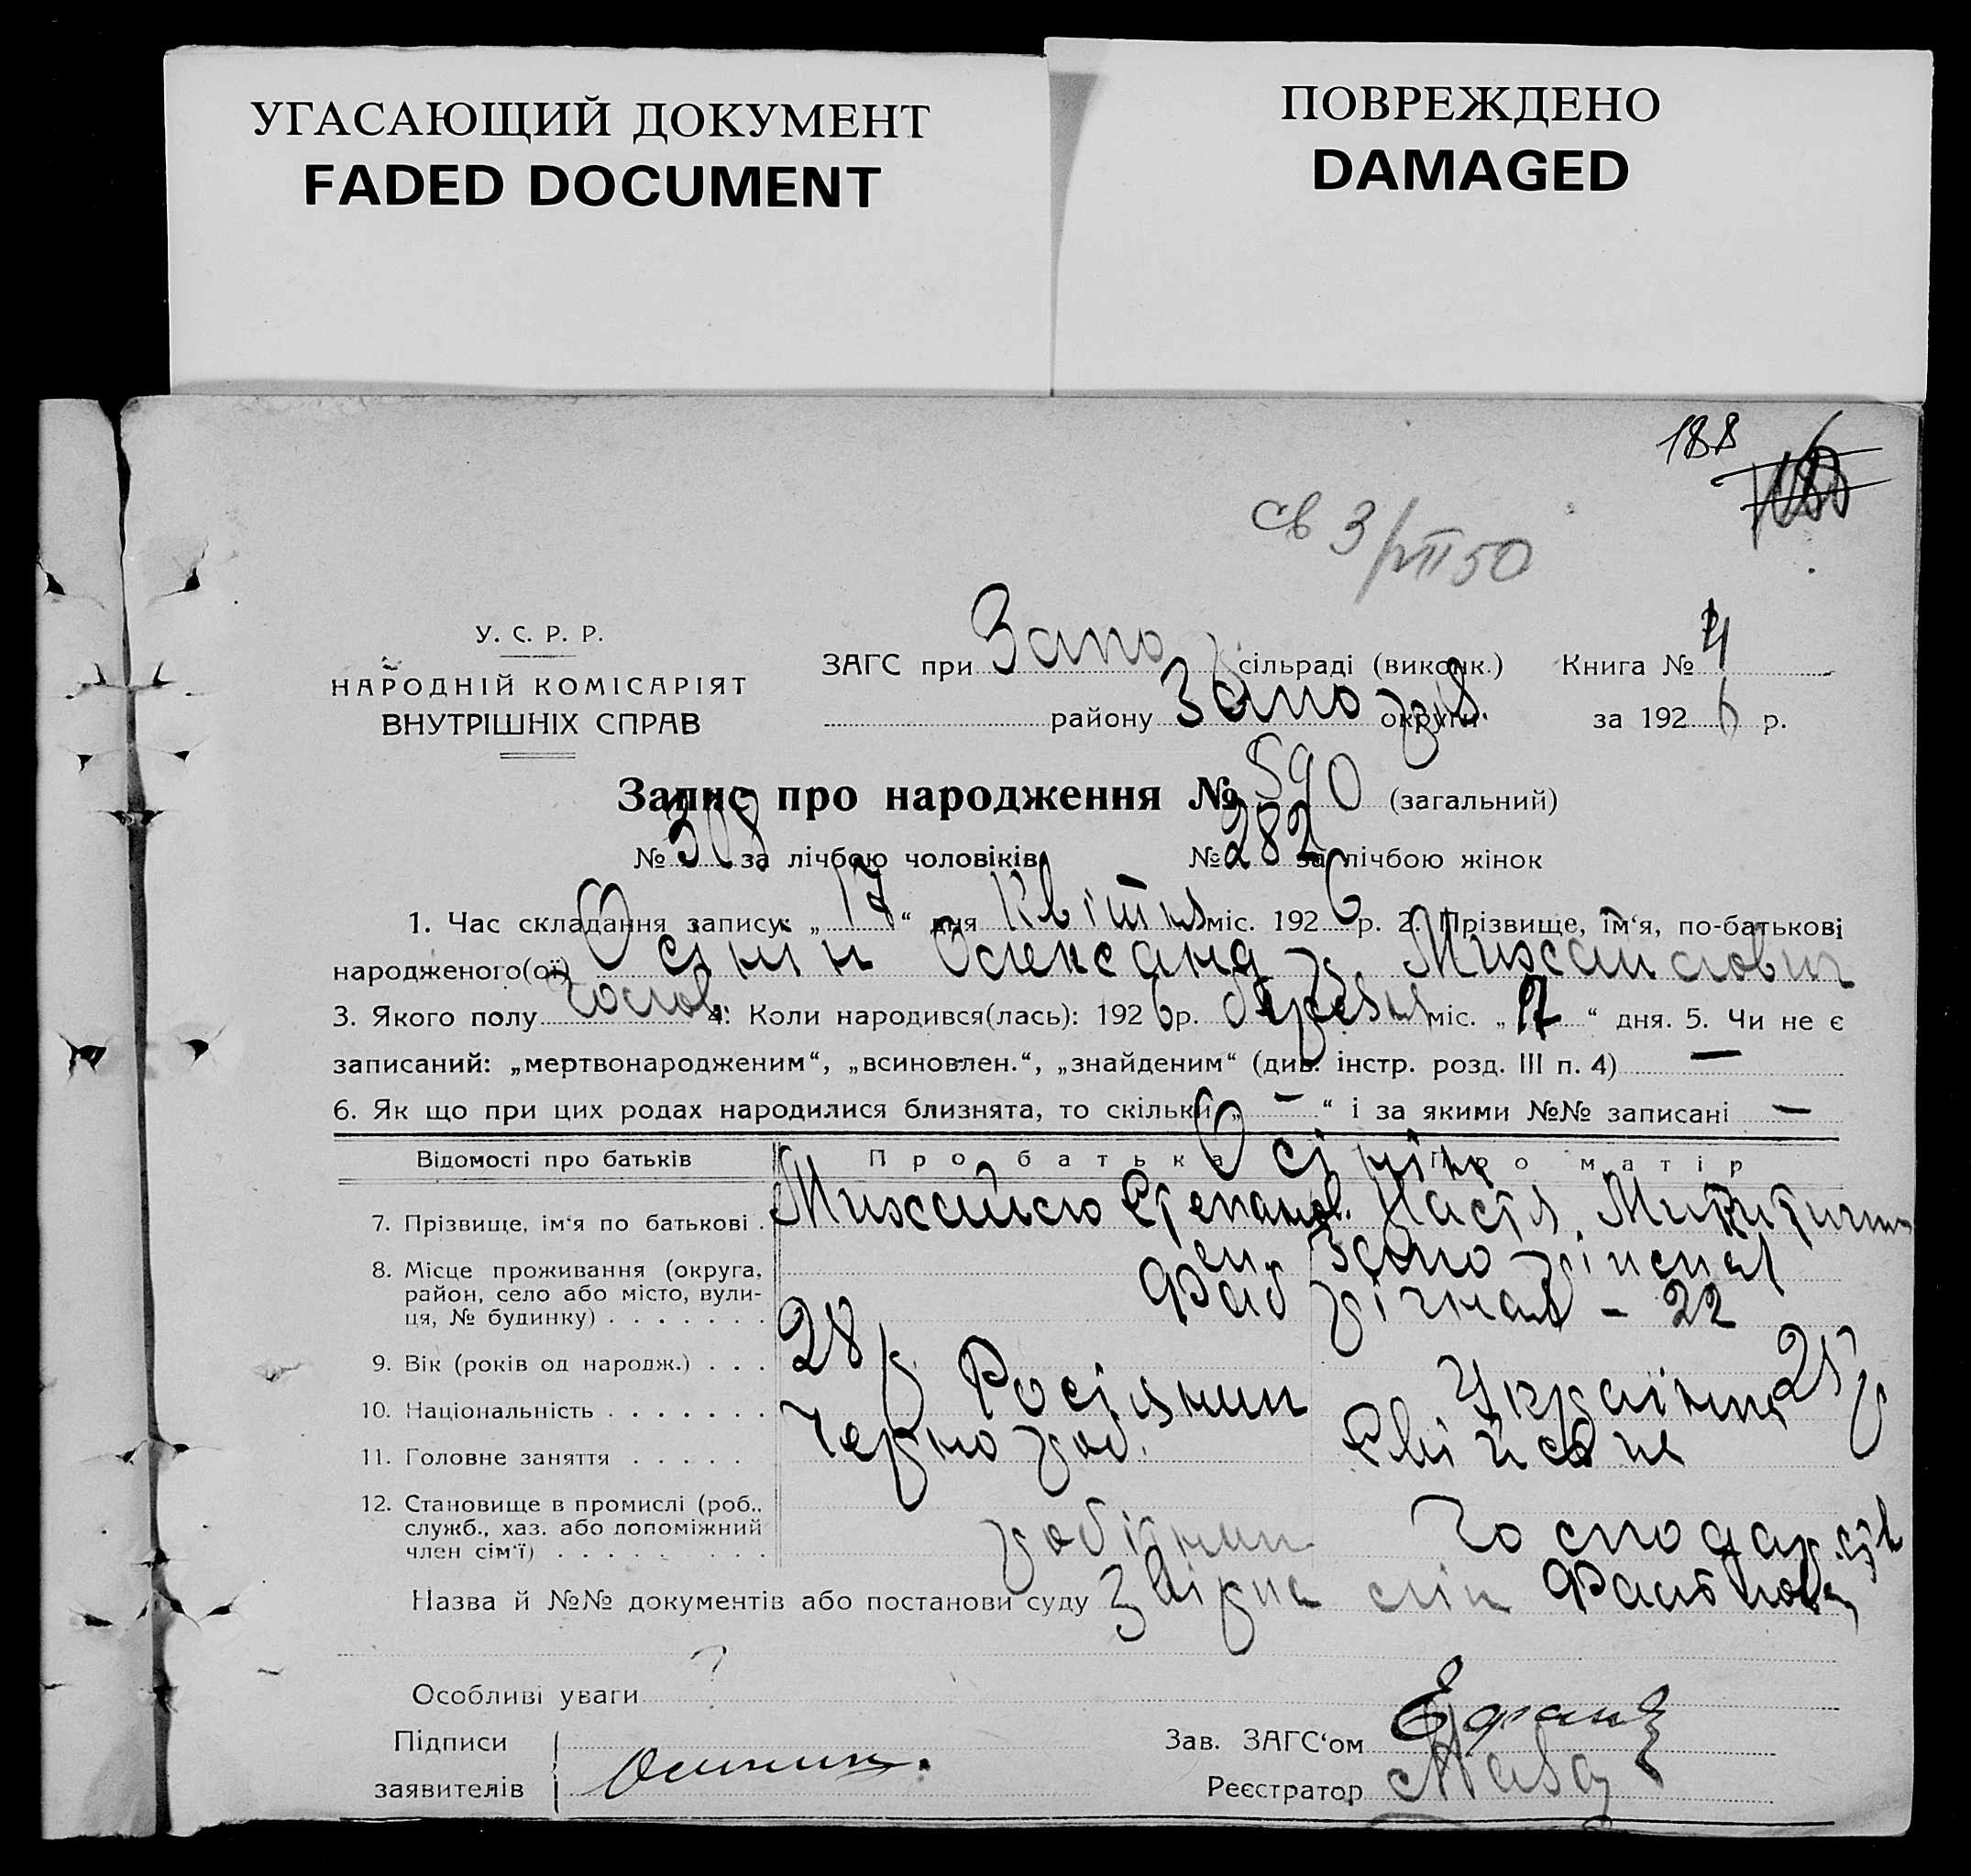 УГАСАЮЩИЙ ДОКУМЕНТ
FADED DOCUMENT
ПОВРЕЖДЕНО
DAMAGED
188
св 3/VII 50
У. С. Р. Р.
НАРОДНІЙ КОМІСАРІЯТ
ВНУТРІШНІХ СПРАВ
ЗАГС при Запо сільраді (виконк.) Книга № 4
району Запо округи. за 1926 р.
Запис про народження № 590 (загальний)
№ 308 за лічбою чоловіків № 282 за лічбою жінок
1. Час складання запису: „17“ дня Квітня міс. 1926 р. 2. Прізвище, ім‘я, по-батькові
народженого(ої) Осінін Олександр Михайлович
3. Якого полу чолов. 4. Коли народився(лась): 1926 р. березня міс. „17“ дня. 5. Чи не є
записаний: „мертвонародженим“, „всиновлен.“, „знайденим“ (див. інстр. розд. III п. 4) —
6. Як що при цих родах народилися близнята, то скільки „—“ і за якими №№ записані —
Відомості про батьків Про батька Про матір
Осініни
7. Прізвище, ім‘я по батькові . Михайло Степанов. Настя
8. Місце проживання (округа,
район, село або місто, вули-
ця, № будинку) . . . . . . .
Фабрична – 22
9. Вік (років од народж.) . . . 28 р 25 р
10. Національність . . . . . . . Росіянин Українка
11. Головне заняття . . . . . Чернороб. Свійське
12. Становище в промислі (роб.,
служб., хаз. або допоміжний
член сім‘ї) . . . . . . . . .
робітник Господарств
Назва й №№ документів або постанови суду
Особливі уваги
Підписи
заявителів Осинин.
Зав. ЗАГС‘ом
Реєстратор